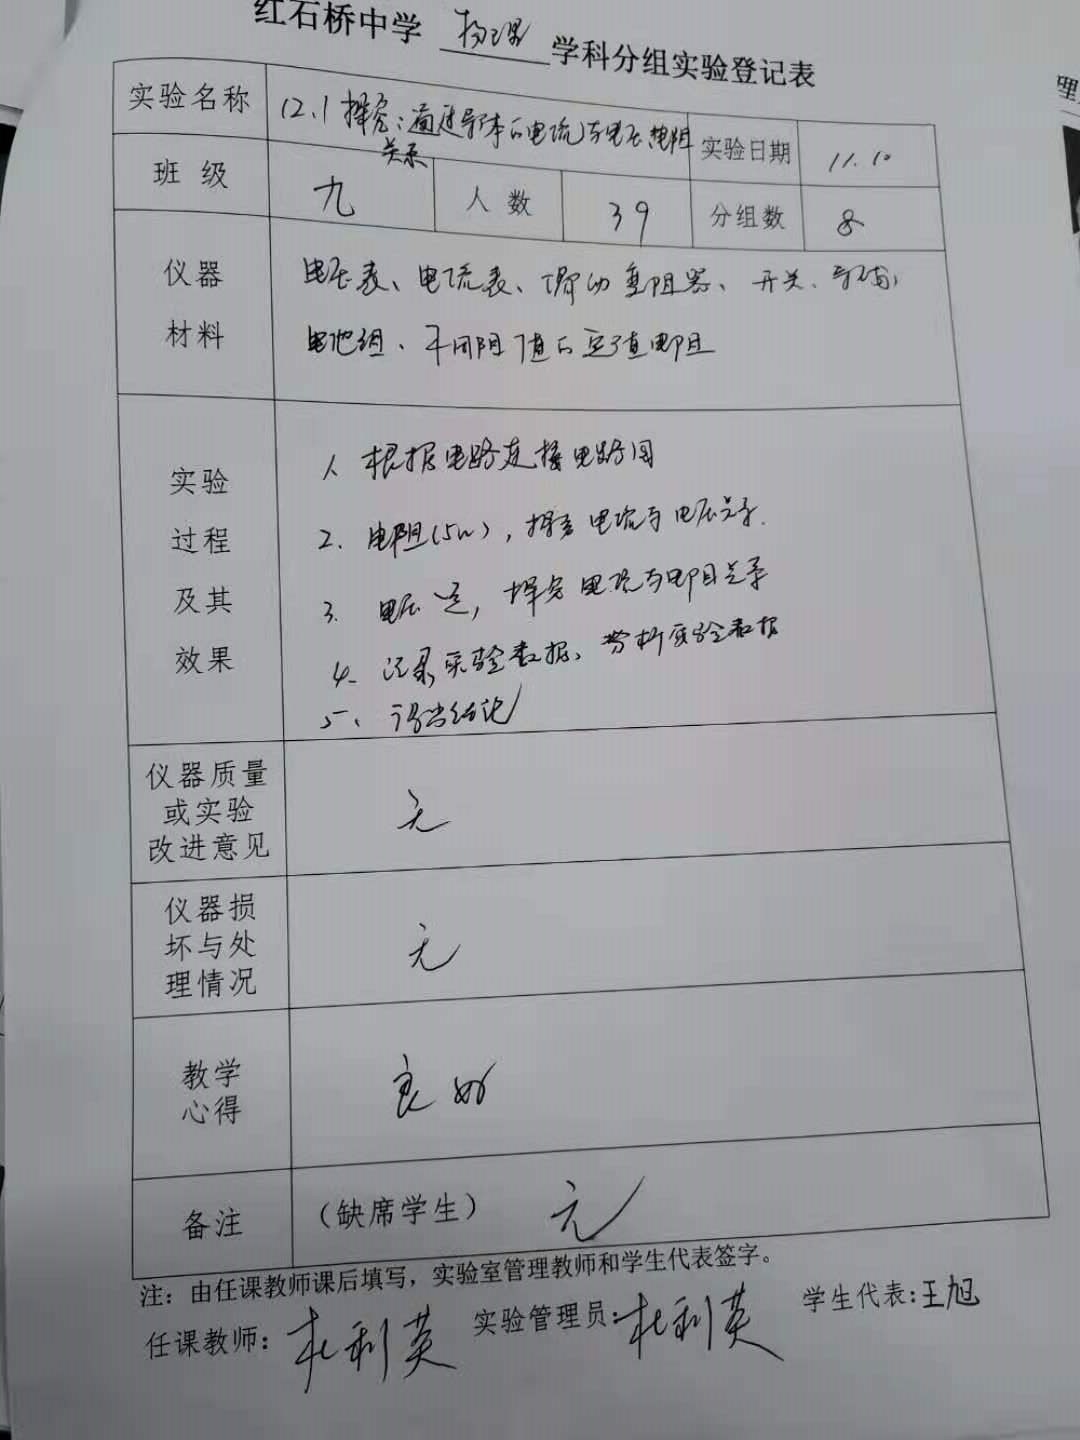 红石桥中学 物理 学科分组实验登记表
实验名称 12.1 探究:通过导体的电流与电压、电阻 实验日期 11.10
关系
班 级 九 人 数 39 分组数 8
仪器 电压表、电流表、滑动变阻器、开关、导线、
材料 电池组、不同阻值的定值电阻
实验 1、根据电路连接电路图
过程 2、电阻(5w),探究电流与电压关系.
及其 3、电压定,探究电流与电阻关系
效果 4、记录实验数据、分析实验数据
5、得出结论
仪器质量
或实验 无
改进意见
仪器损
坏与处 无
理情况
教学 良好
心得
备注 (缺席学生) 无
注:由任课教师课后填写,实验室管理教师和学生代表签字。
任课教师:杜利英 实验管理员:杜利英 学生代表:王旭
理